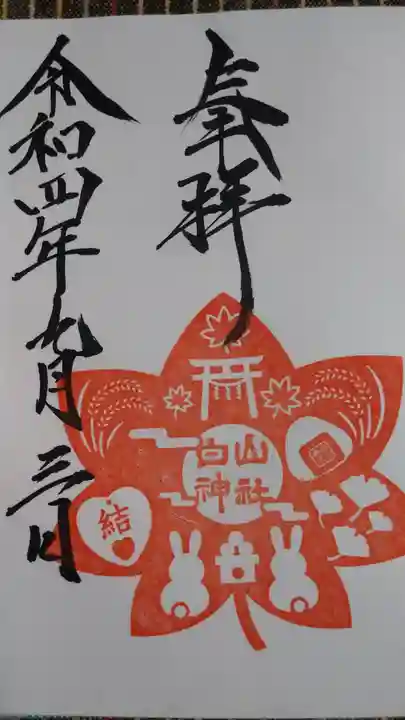 奉拝
白山神社
結
令和四年九月三日